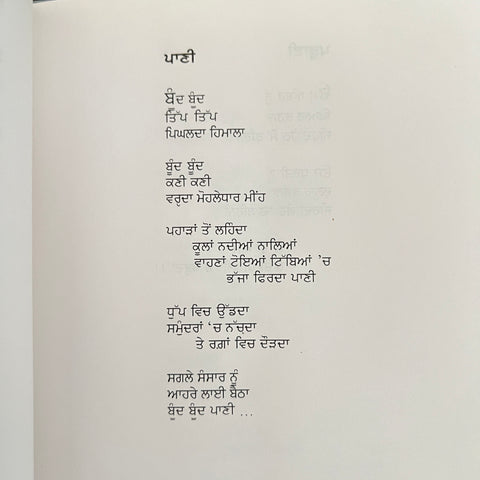 ਪਾਣੀ
ਬੂੰਦ ਬੂੰਦ
ਤਿੱਪ ਤਿੱਪ
ਪਿਘਲਦਾ ਹਿਮਾਲਾ
ਬੂੰਦ ਬੂੰਦ
ਕਣੀ ਕਣੀ
ਵਰ੍ਹਦਾ ਮੋਹਲੇਧਾਰ ਮੀਂਹ
ਪਹਾੜਾਂ ਤੋਂ ਲਹਿੰਦਾ
ਕੂਲਾਂ ਨਦੀਆਂ ਨਾਲਿਆਂ
ਵਾਹਣਾਂ ਟੋਇਆਂ ਟਿੱਬਿਆਂ ’ਚ
ਭੱਜਾ ਫਿਰਦਾ ਪਾਣੀ
ਧੁੱਪ ਵਿਚ ਉੱਡਦਾ
ਸਮੁੰਦਰਾਂ ‘ਚ ਨੱਚਦਾ
ਤੇ ਰਗ਼ਾਂ ਵਿਚ ਦੌੜਦਾ
ਸਗਲੇ ਸੰਸਾਰ ਨੂੰ
ਆਹਰੇ ਲਾਈ ਬੈਠਾ
ਬੂੰਦ ਬੂੰਦ ਪਾਣੀ ...